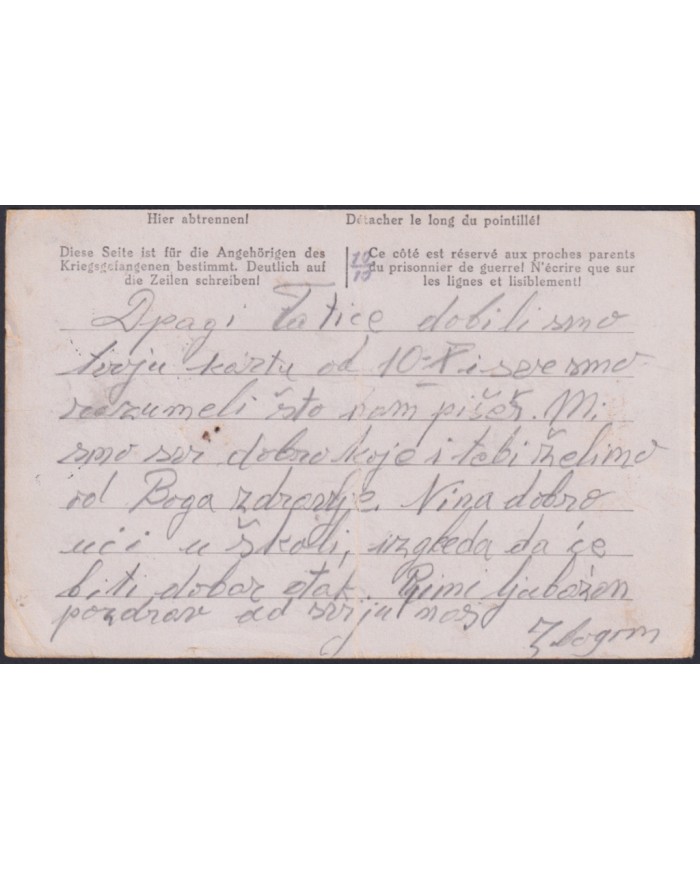 Hier abtrennen! Détacher le long du pointillé!
Diese Seite ist für die Angehörigen des
Kriegsgefangenen bestimmt. Deutlich auf
die Zeilen schreiben!
20/10
Ce côté est réservé aux proches parents
du prisonnier de guerre! N'écrire que sur
les lignes et lisiblement!
Dpagi Tatice dobili smo
tvoju kartu od 10-X i sve smo
razumeli što nam pišeš. Mi
smo svi dobro koje i tebi želimo
od Boga zdravlje. Nina dobro
uči u školi, izgleda da će
biti dobar đak. Primi ljubazen
pozdrav od sviju nas
Zbogom